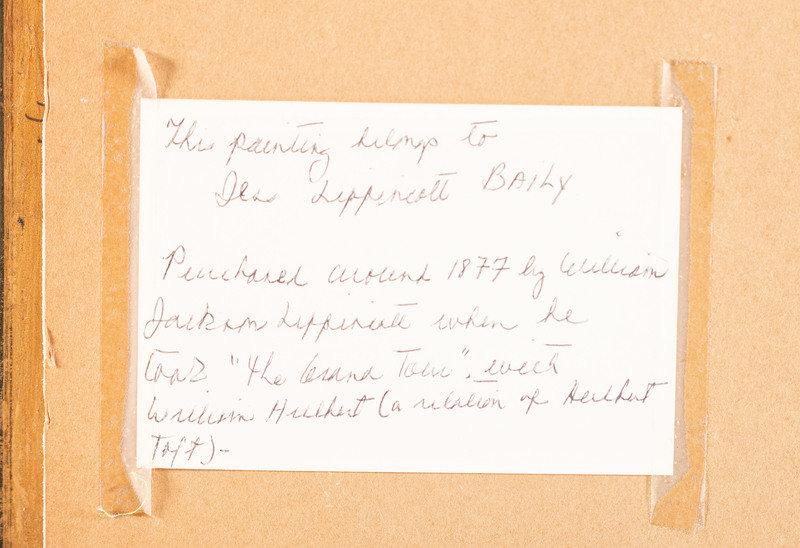 This painting belongs to
Lippincott BAILY
Purchased around 1877 by William
Jackson Lippincott when he
took "the Grand Tour". with
William Hulbert (a relation of Hulbert
Taft)-